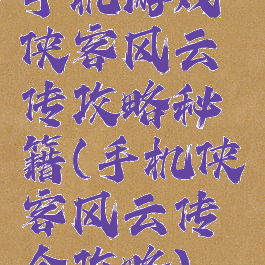 手机游戏
侠客风云
传攻略秘
籍(手机侠
客风云传
全攻略)